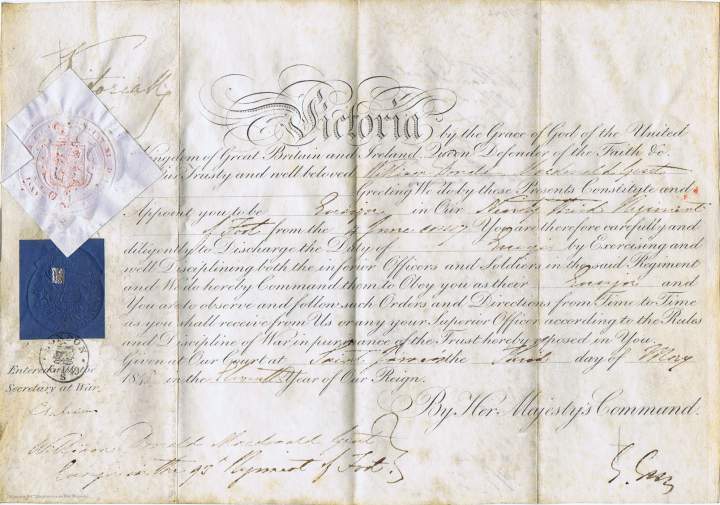 Victoria R
Victoria by the Grace of God of the United
Kingdom of Great Britain and Ireland, Queen Defender of the Faith &c.
our Trusty and well beloved William Donald Macdonald Gent
Greeting We do by these Presents Constitute and
Appoint you to be Ensign in Our Ninety third Regiment
of Foot from the June You are therefore carefully and
diligently to Discharge the Duty of Ensign by Exercising and
well Disciplining both the inferior Officers and Soldiers in the said Regiment
and We do hereby Command them to Obey you as their Ensign and
You are to observe and follow such Orders and Directions from Time to Time
as you shall receive from Us or any your Superior Officer according to the Rules
and Discipline of War in pursuance of the Trust hereby reposed in You.
Given at Our Court at Saint James's the day of May
184 in the Year of Our Reign.
By Her Majesty's Command.
Entered with the
Secretary at War.
William Donald Macdonald Gent
Ensign in the 93d Regiment of Foot
G. Grey